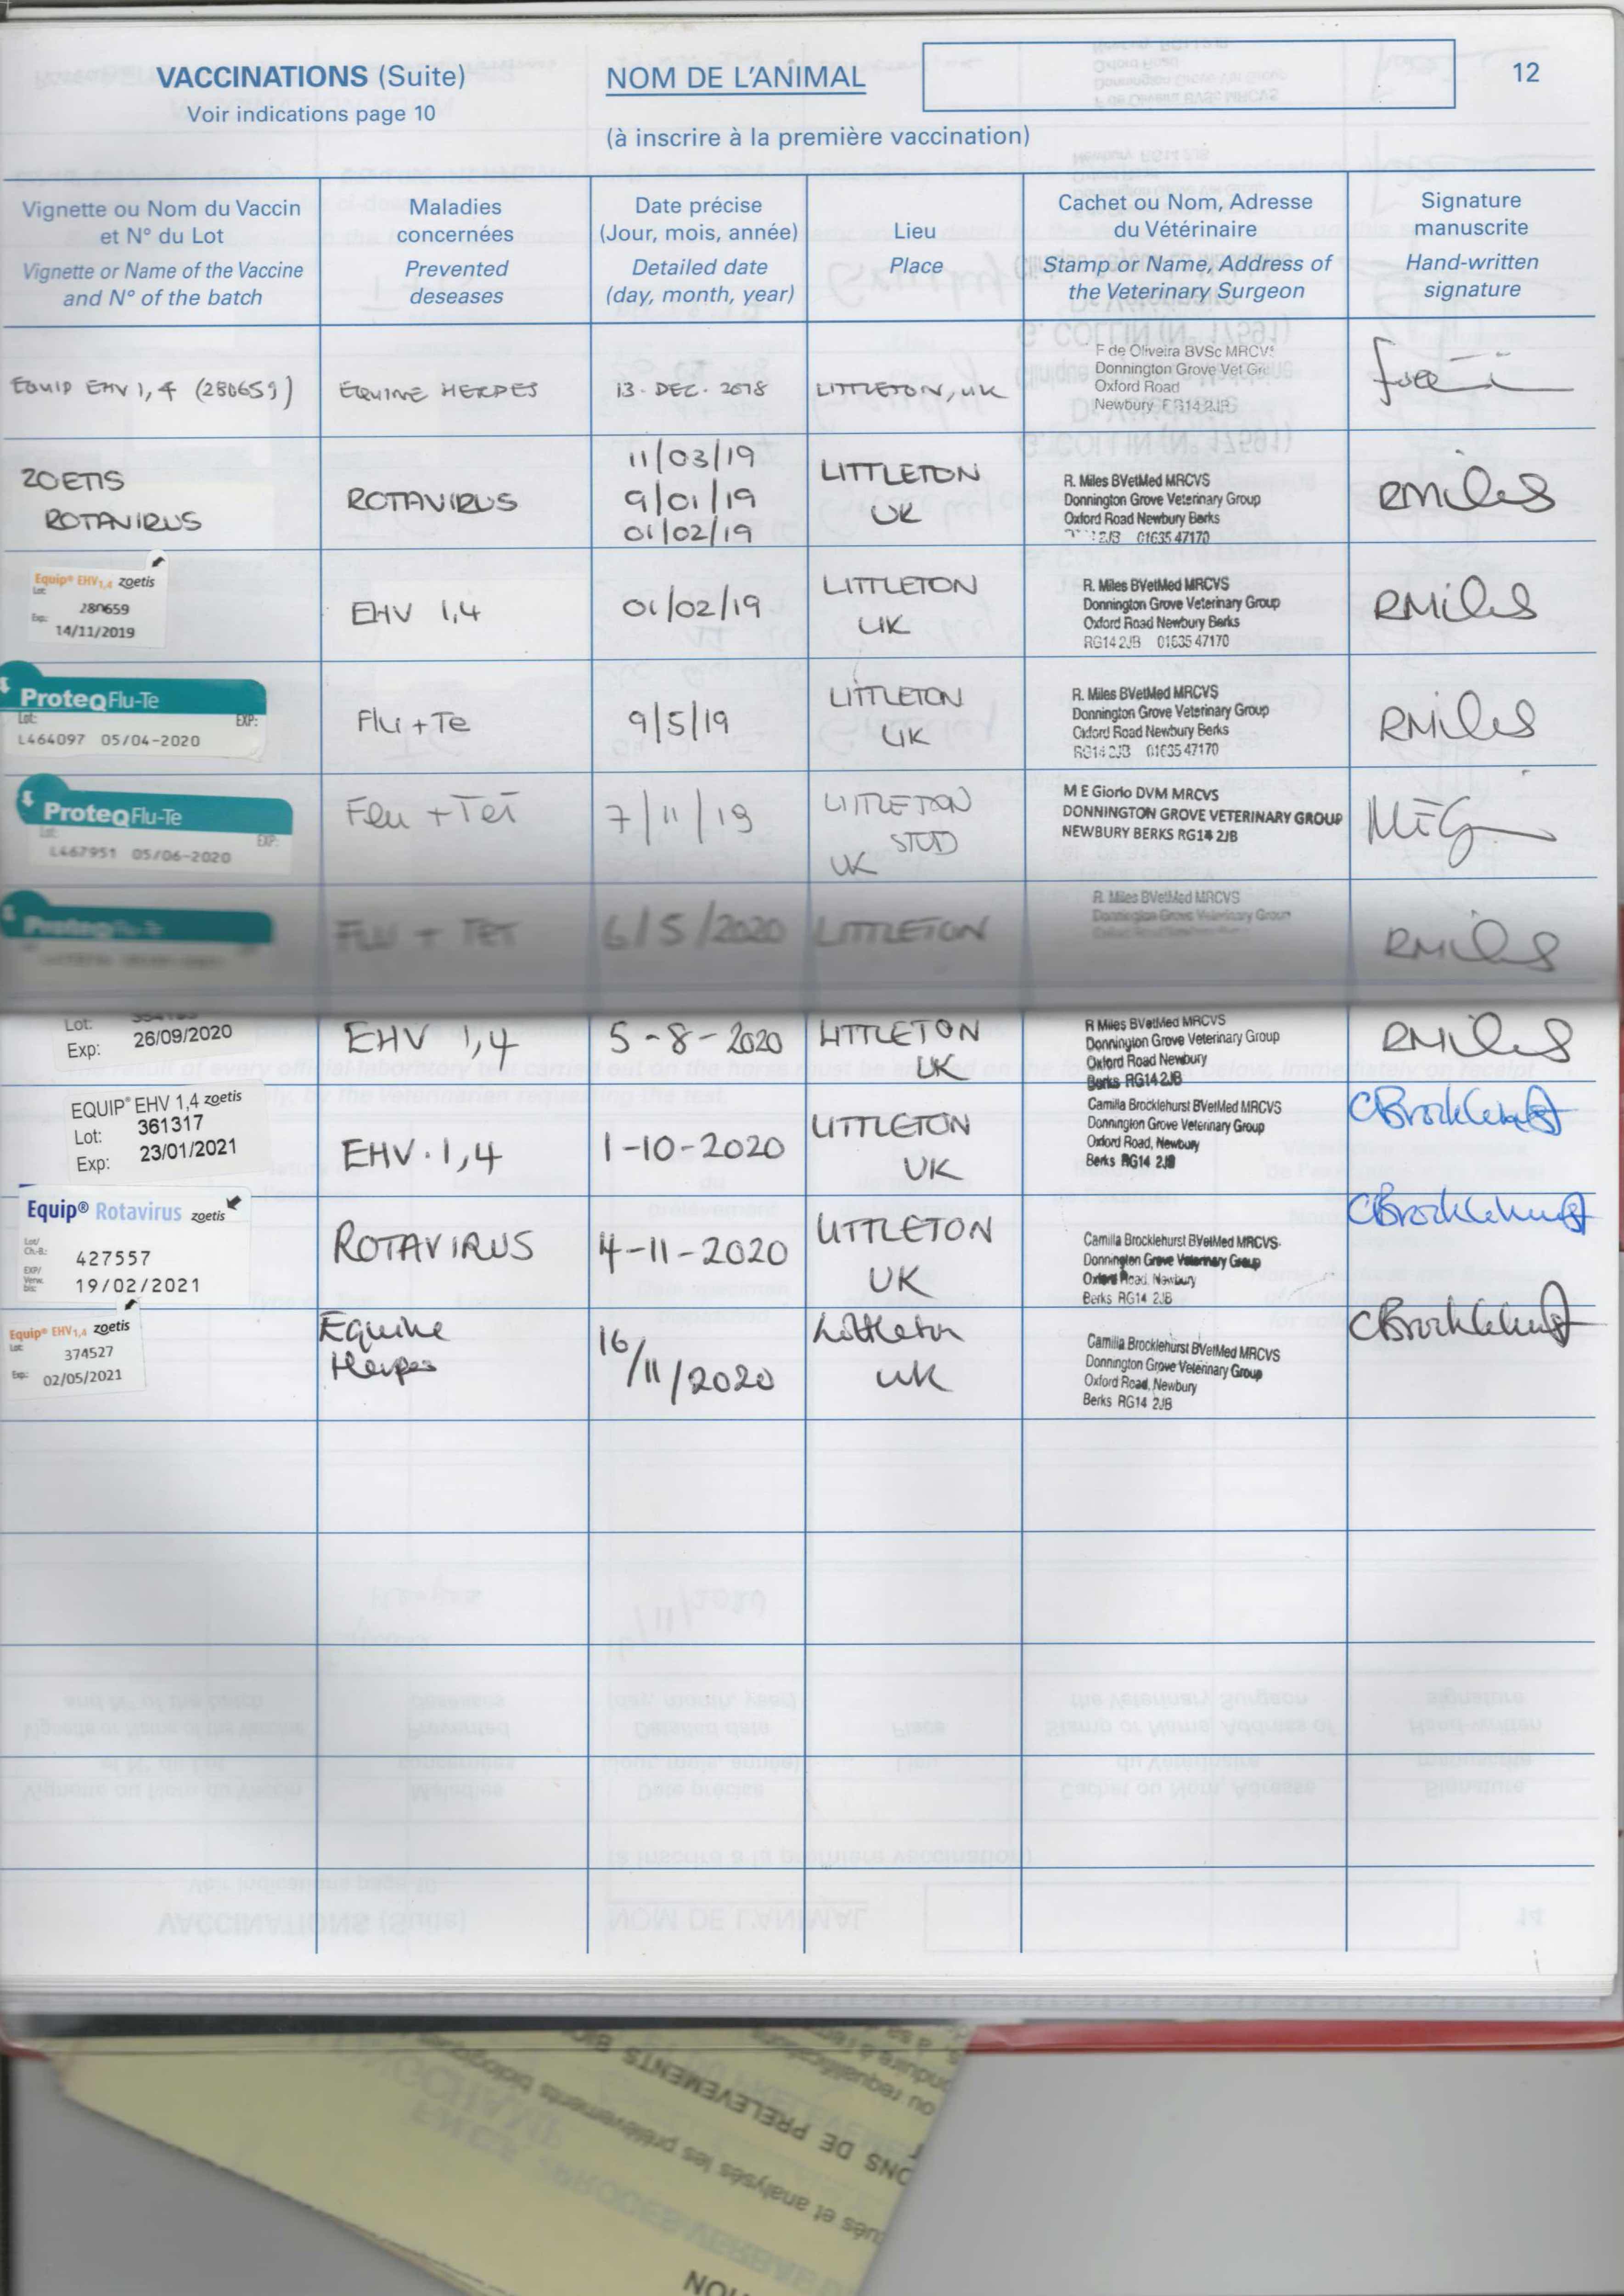 VACCINATIONS (Suite)
Voir indications page 10
NOM DE L'ANIMAL
(à inscrire à la première vaccination)
12
Vignette ou Nom du Vaccin
et N° du Lot
Vignette or Name of the Vaccine
and N° of the batch
Maladies
concernées
Prevented
deseases
Date précise
(Jour, mois, année)
Detailed date
(day, month, year)
Lieu
Place
Cachet ou Nom, Adresse
du Vétérinaire
Stamp or Name, Address of
the Veterinary Surgeon
Signature
manuscrite
Hand-written
signature
EQUIP EHV 1,4 (280659)
EQUINE HERPES
13. DEC. 2018
LITTLETON, UK
F de Oliveira BVSc MRCVS
Donnington Grove Vet Gr
Oxford Road
Newbury RG14 2JB
ZOETIS
ROTAVIRUS
ROTAVIRUS
11/03/19
9/01/19
01/02/19
LITTLETON
UK
R. Miles BVetMed MRCVS
Donnington Grove Veterinary Group
Oxford Road Newbury Berks
2JB 01635 47170
RMiles
Equip® EHV1,4 zoetis
Lot:
280659
Exp:
14/11/2019
EHV 1,4
01/02/19
LITTLETON
UK
R. Miles BVetMed MRCVS
Donnington Grove Veterinary Group
Oxford Road Newbury Berks
RG14 2JB 01635 47170
RMiles
ProteqFlu-Te
Lot: EXP:
L464097 05/04-2020
Flu + Te
9/5/19
LITTLETON
UK
R. Miles BVetMed MRCVS
Donnington Grove Veterinary Group
Oxford Road Newbury Berks
RG14 2JB 01635 47170
RMiles
ProteqFlu-Te
Lot: EXP:
L467951 05/06-2020
Flu + Tet
7/11/19
LITTLETON
STUD
UK
M E Giorio DVM MRCVS
DONNINGTON GROVE VETERINARY GROUP
NEWBURY BERKS RG14 2JB
ProteqFlu-Te
FLU + TET
6/5/2020
LITTLETON
R. Miles BVetMed MRCVS
Donnington Grove Veterinary Group
RMiles
Lot:
Exp: 26/09/2020
EHV 1,4
5-8-2020
LITTLETON
UK
R Miles BVetMed MRCVS
Donnington Grove Veterinary Group
Oxford Road Newbury
Berks RG14 2JB
RMiles
EQUIP® EHV 1,4 zoetis
Lot: 361317
Exp: 23/01/2021
EHV.1,4
1-10-2020
LITTLETON
UK
Camilla Brocklehurst BVetMed MRCVS
Donnington Grove Veterinary Group
Oxford Road, Newbury
Berks RG14 2JB
CBrocklehurst
Equip® Rotavirus zoetis
Lot/
Ch.-B.:
427557
EXP/
Verw.
bis:
19/02/2021
ROTAVIRUS
4-11-2020
LITTLETON
UK
Camilla Brocklehurst BVetMed MRCVS
Donnington Grove Veterinary Group
Oxford Road, Newbury
Berks RG14 2JB
CBrocklehurst
Equip® EHV1,4 zoetis
Lot:
374527
Exp:
02/05/2021
Equine
Herpes
16/11/2020
Littleton
UK
Camilla Brocklehurst BVetMed MRCVS
Donnington Grove Veterinary Group
Oxford Road, Newbury
Berks RG14 2JB
CBrocklehurst
ou requalifications
ONS DE PRELEVEMENTS BIO
qués et analysés les prélèvements biologiques